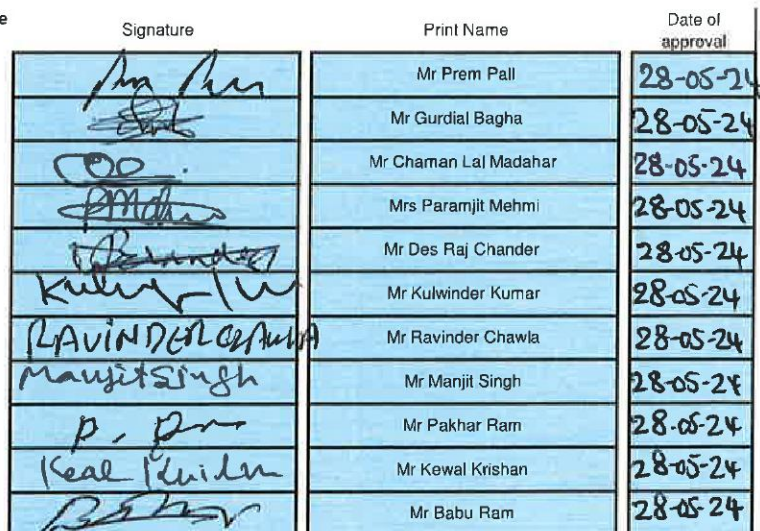 e
Signature Print Name Date of
approval
Mr Prem Pall 28-05-24
Mr Gurdial Bagha 28-05-24
Mr Chaman Lal Madahar 28-05-24
Mrs Paramjit Mehmi 28-05-24
Mr Des Raj Chander 28-05-24
Mr Kulwinder Kumar 28-05-24
RAVINDER CHAWLA Mr Ravinder Chawla 28-05-24
Manjit Singh Mr Manjit Singh 28-05-24
Mr Pakhar Ram 28-05-24
Mr Kewal Krishan 28-05-24
Mr Babu Ram 28-05-24